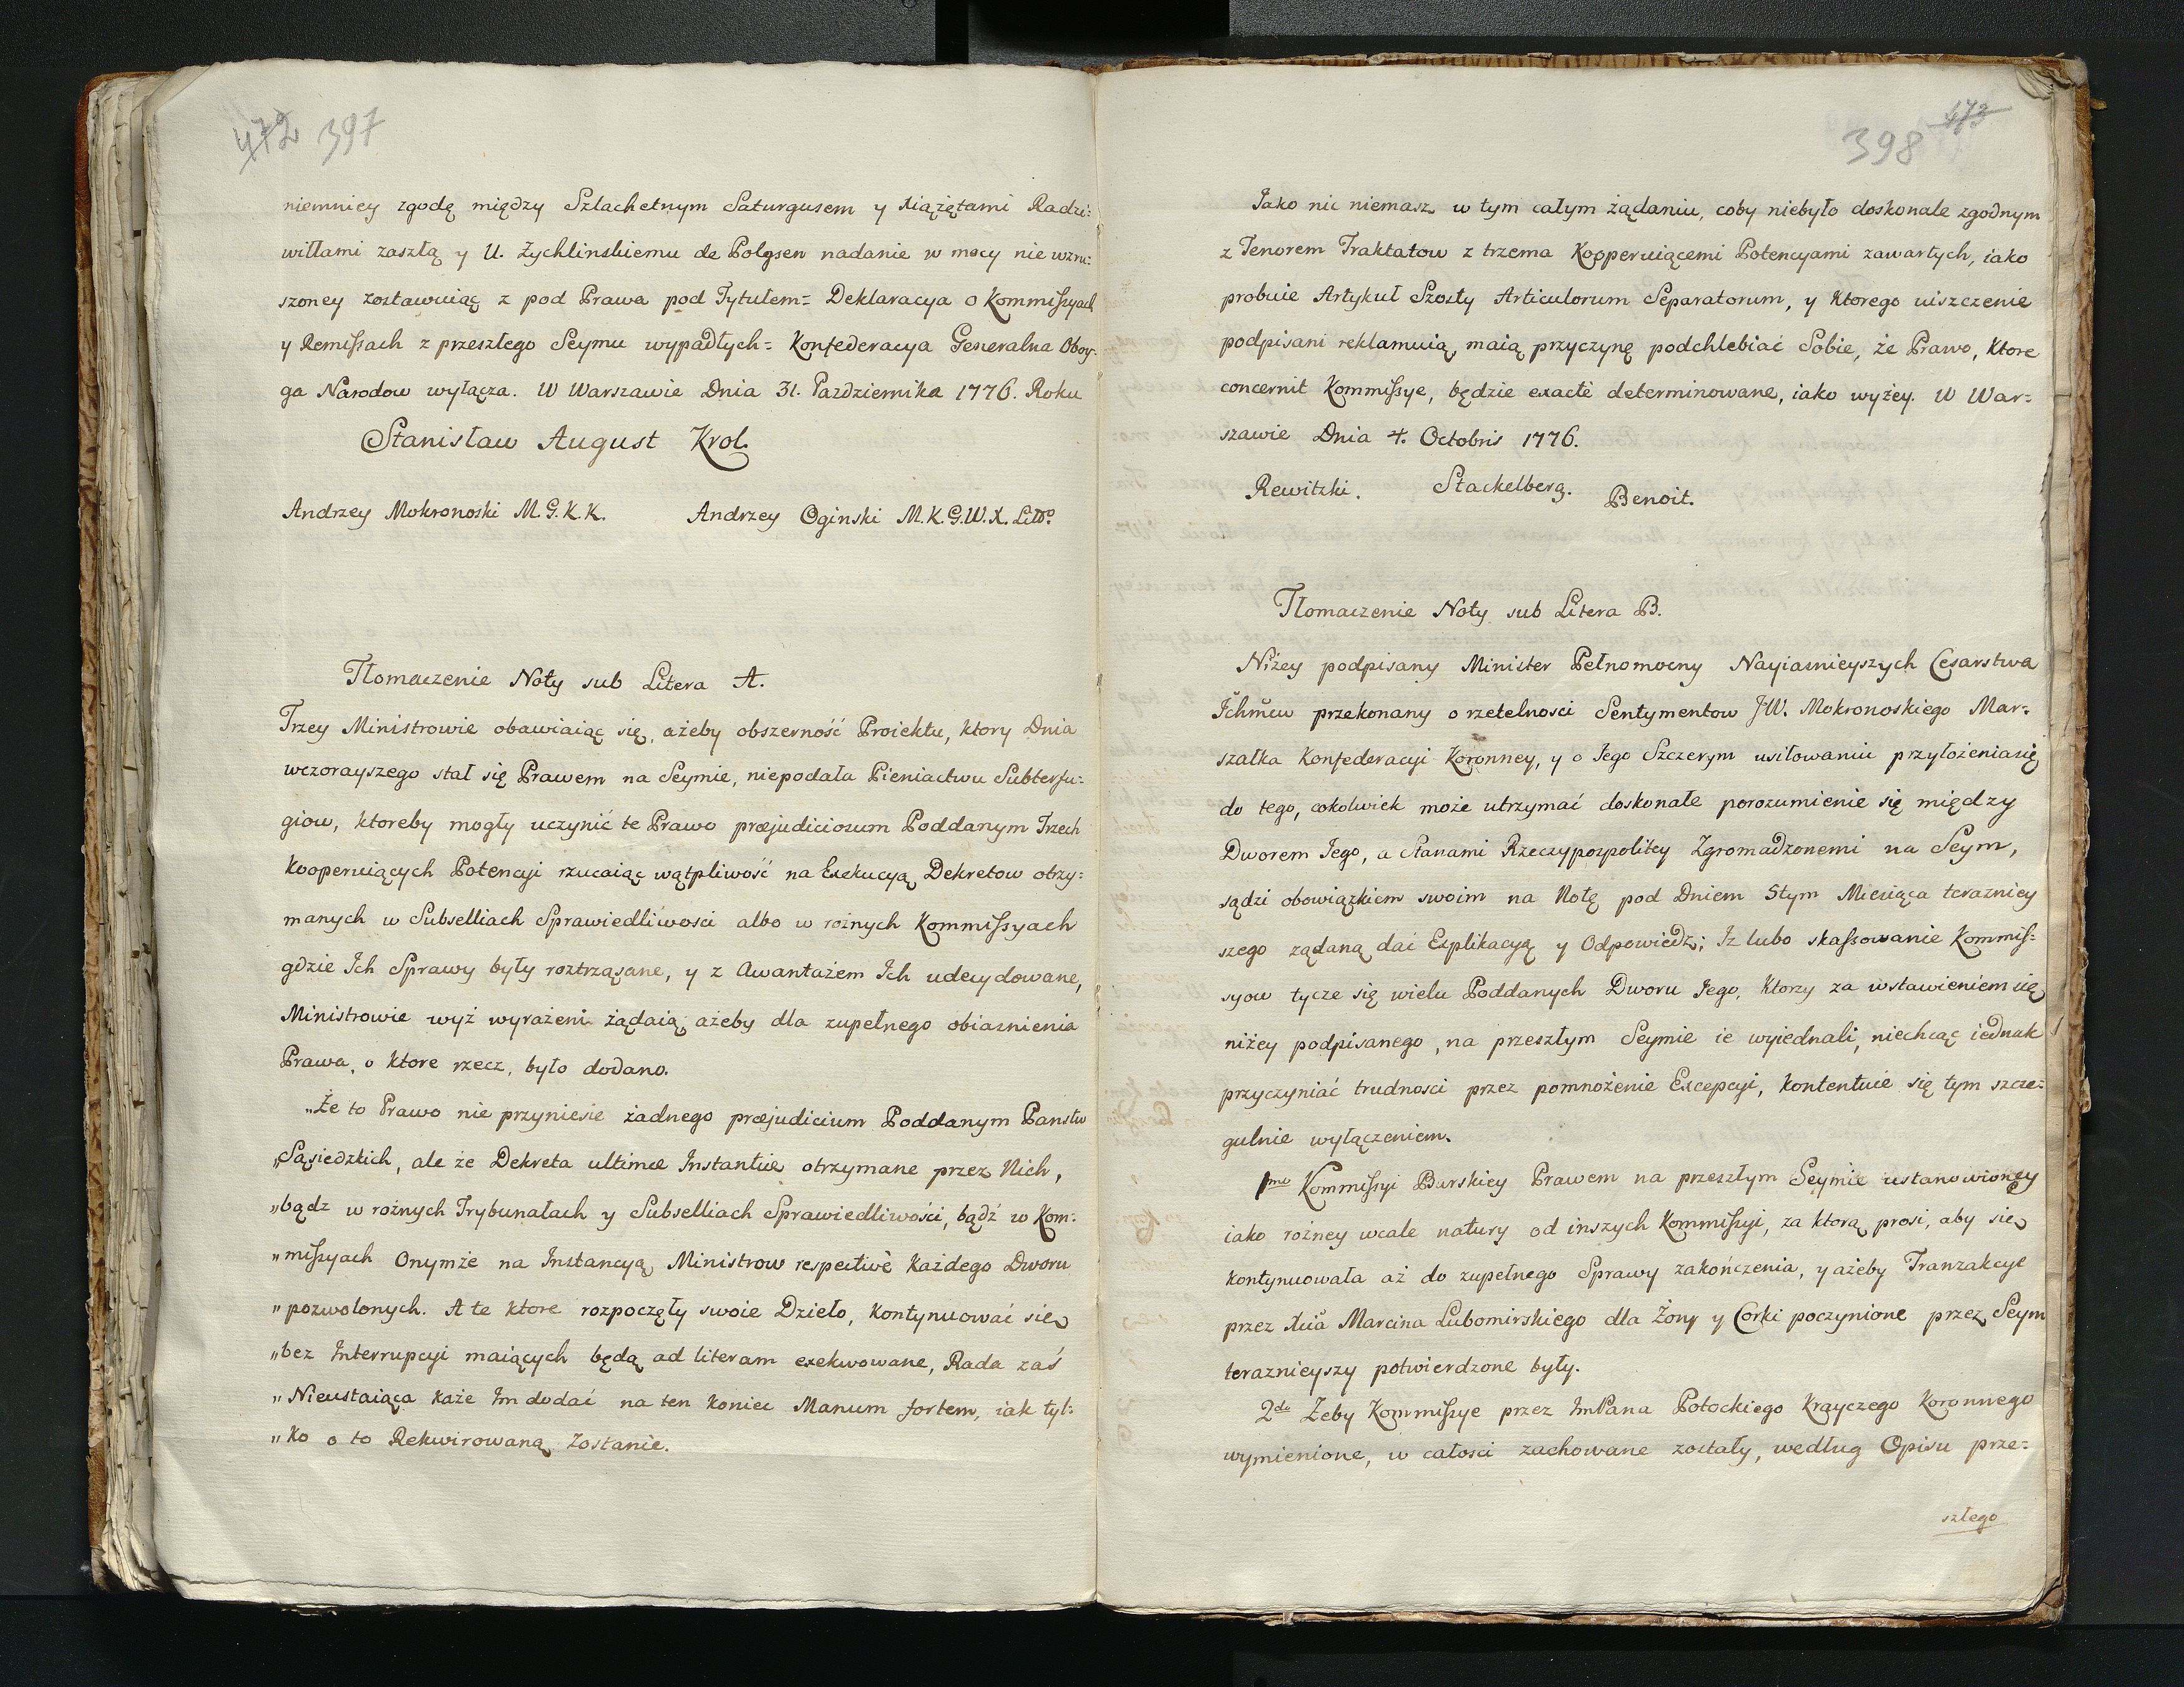 472 397
niemniey zgodę między Szlachetnym Saturgusem y Xiążętami Radzi=
willami zaszłą y U. Zychlinskiemu de Polgsen nadanie w mocy nie wzru=
szoney zostawuiąc z pod Prawa pod Tytułem= Deklaracya o Kommissyach
y Remissach z przeszłego Seymu wypadłych= Konfederacya Generalna Oboy=
ga Narodow wyłącza. W Warszawie Dnia 31. Pazdziernika 1776. Roku
Stanisław August Krol.
Andrzey Mokronoski M.G.K.K. Andrzey Oginski M.K.G.W.X. Litt.º
Tłomaczenie Noty sub Litera A.
Trzey Ministrowie obawiaiąc się, ażeby obszerność Proiektu, ktory Dnia
wczorayszego stał się Prawem na Seymie, niepodała Pieniactwu Subterfu=
giow, ktoreby mogły uczynić te Prawo præjudiciosum Poddanym Trzech
Kooperuiących Potencyi rzucaiąc wątpliwość na Exekucyą Dekretow otrzy=
manych w Subselliach Sprawiedliwosci albo w rożnych Kommissyach
gdzie Ich Sprawy były roztrząsane, y z Awantażem Ich udecydowane,
Ministrowie wyż wyrażeni żądaią, ażeby dla zupełnego obiasnienia
Prawa, o ktore rzecz, było dodano.
„Że to Prawo nie przyniesie żadnego præjudicium Poddanym Panstw
„Sąsiedzkich, ale że Dekreta ultimæ Instantiæ otrzymane przez Nich,
„bądz w rożnych Trybunałach y Subselliach Sprawiedliwości, bądź w Kom=
„missyach Onymże na Instancyą Ministrow respective każdego Dworu
„pozwolonych. A te ktore rozpoczęły swoie Dzieło, kontynuować się
„bez Interrupcyi maiących będą ad literam exekwowane, Rada zaś
„Nieustaiąca każe Im dodać na ten koniec Manum fortem, iak tyl=
„ko o to Rekwirowaną Zostanie.
398 473
Iako nic niemasz w tym całym żądaniu, coby niebyło doskonale zgodnym
z Tenorem Traktatow z trzema Kooperuiącemi Potencyami zawartych, iako
probuie Artykuł Szosty Articulorum Separatorum, y ktorego uiszczenie
podpisani reklamuią, maią przyczynę podchlebiać Sobie, że Prawo, ktore
concernit Kommissye, będzie exactè determinowane, iako wyżey. W War=
szawie Dnia 4. Octobris 1776.
Rewitzki. Stackelberg. Benoit.
Tłomaczenie Noty sub Litera B.
Niżey podpisany Minister Pełnomocny Nayiasnieyszych Cesarstwa
Ichmciow przekonany o rzetelnosci Sentymentow JW. Mokronoskiego Mar=
szałka Konfederacyi Koronney, y o Iego Szczerym usiłowaniu przyłożenia się
do tego, cokolwiek może utrzymać doskonałe porozumienie się między
Dworem Iego, a Stanami Rzeczypospolitey Zgromadzonemi na Seym,
sądzi obowiązkiem swoim na Notę pod Dniem 5tym Miesiąca terazniey
szego ządaną dać Explikacyą y Odpowiedz; Iz lubo skassowanie Kommis=
syow tycze się wielu Poddanych Dworu Iego, ktorzy za wstawieniem się
niżey podpisanego, na przeszłym Seymie ie wyiednali, niechcąc iednak
przyczyniać trudnosci przez pomnożenie Excepcyi, kontentuie się tym szcze=
gulnie wyłączeniem.
1mo Kommissyi Barskiey Prawem na przeszłym Seymie ustanowioney
iako rożney wcale natury od inszych Kommissyi, za ktorą prosi, aby się
kontynuowała aż do zupełnego Sprawy zakończenia, y ażeby Tranzakcye
przez Xcia Marcina Lubomirskiego dla Żony y Corki poczynione przez Seym
teraznieyszy potwierdzone były.
2do Żeby Kommissye przez ImPana Potockiego Krayczego Koronnego
wymienione, w całosci zachowane zostały, według Opisu prze=
szłego